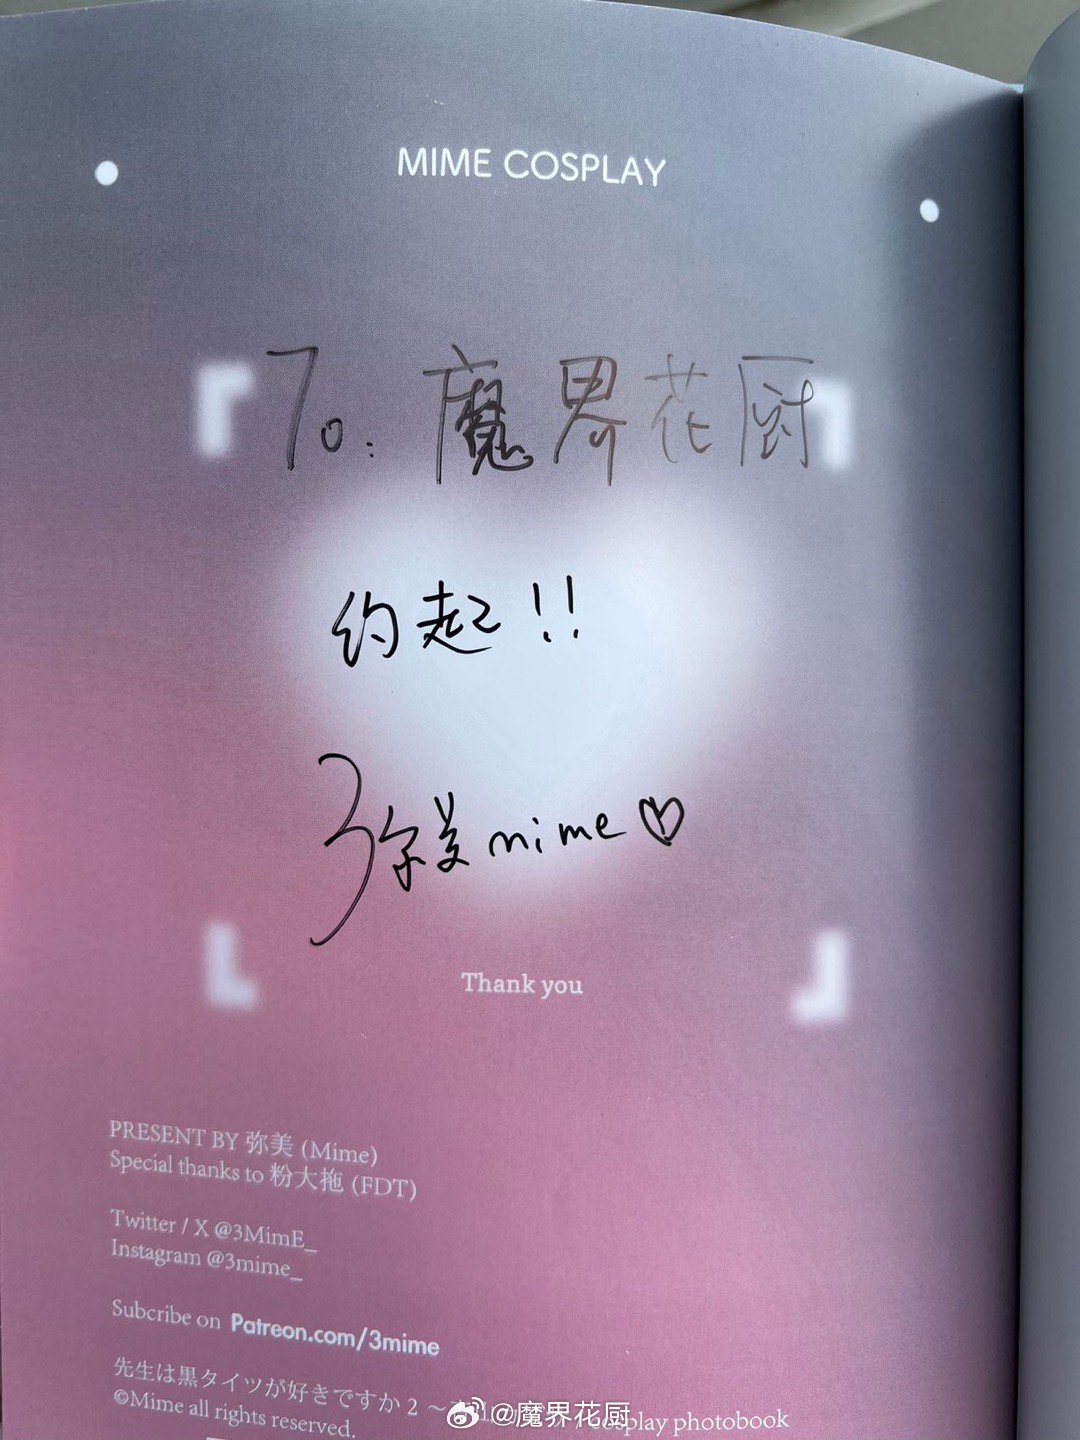 MIME COSPLAY
To: 魔界花厨
约起!!
弥美mime♡
Thank you
PRESENT BY 弥美 (Mime)
Special thanks to 粉大拖 (FDT)
Twitter / X @3MimE_
Instagram @3mime_
Subcribe on Patreon.com/3mime
先生は黒タイツが好きですか 2 ~
cosplay photobook
©Mime all rights reserved.
@魔界花厨